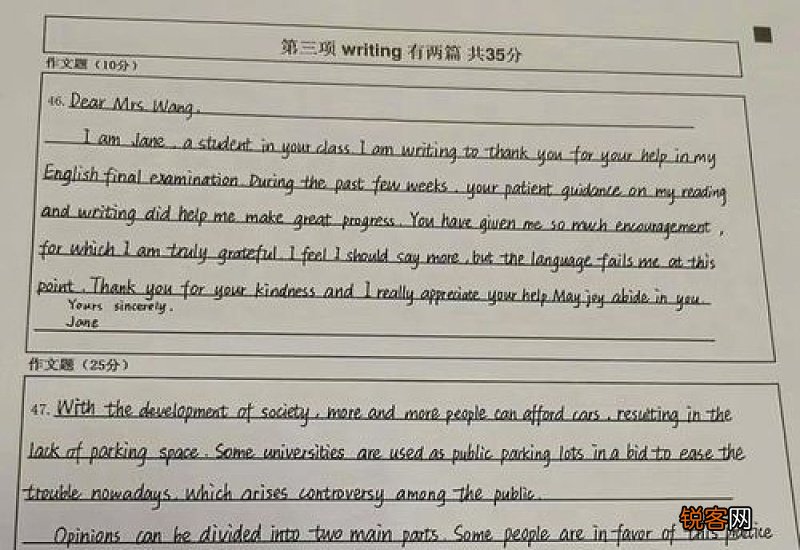 第三项 writing 有两篇 共35分
作文题（10分）
46. Dear Mrs. Wang,
I am Jane, a student in your class. I am writing to thank you for your help in my
English final examination. During the past few weeks, your patient guidance on my reading
and writing did help me make great progress. You have given me so much encouragement,
for which I am truly grateful. I feel I should say more, but the language fails me at this
point. Thank you for your kindness and I really appreciate your help. May joy abide in you.
Yours sincerely,
Jane
作文题（25分）
47. With the development of society, more and more people can afford cars, resulting in the
lack of parking space. Some universities are used as public parking lots in a bid to ease the
trouble nowadays, which arises controversy among the public.
Opinions can be divided into two main parts. Some people are in favor of this practice
锐客网